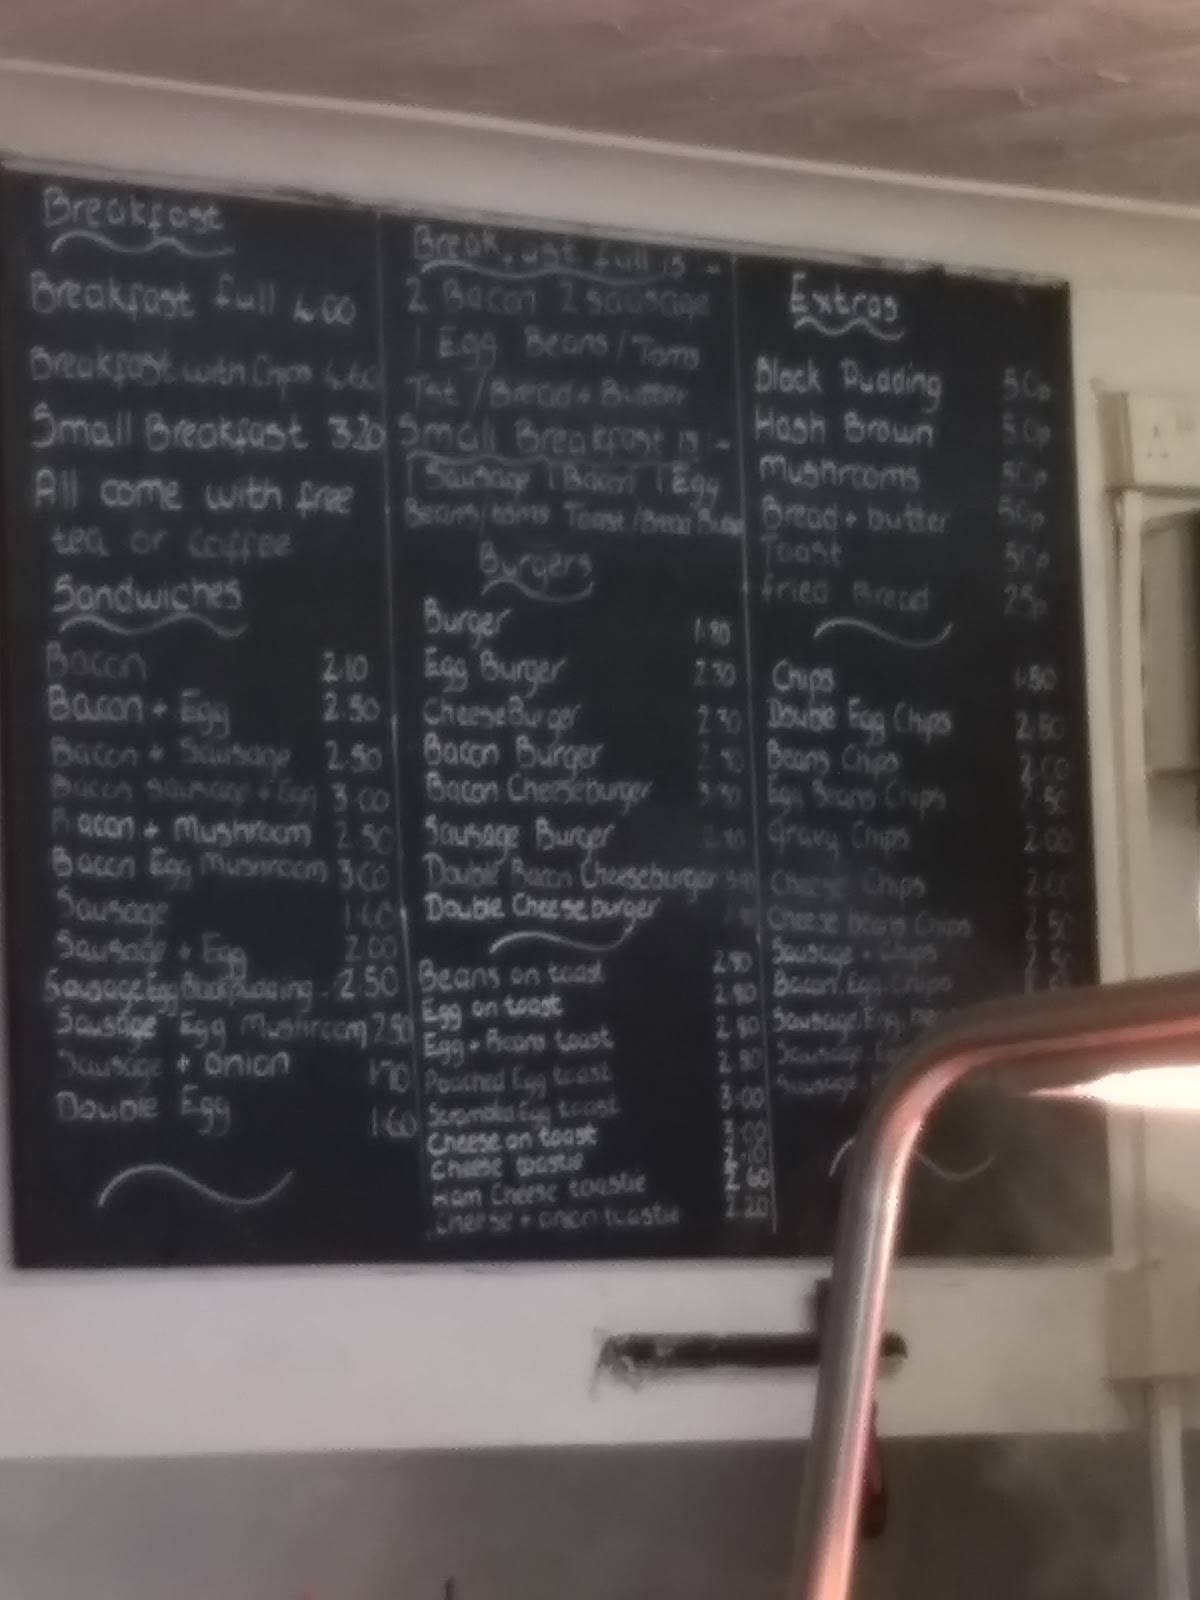 Breakfast
Breakfast full 4.00
Breakfast with Chips 4.60
Small Breakfast 3.20
All come with free
tea or coffee
Sandwiches
Bacon 2.10
Bacon + Egg 2.50
Bacon + Sausage 2.50
Bacon Sausage + Egg 3.00
Bacon + Mushroom 2.50
Bacon Egg Mushroom 3.00
Sausage 1.60
Sausage + Egg 2.00
Sausage Egg Black pudding 2.50
Sausage Egg Mushroom 2.50
Sausage + onion 1.70
Double Egg 1.60
Breakfast full is :-
2 Bacon 2 sausage
1 Egg Beans / Toms
Tst / Bread + Butter
Small Breakfast is :-
1 Sausage 1 Bacon 1 Egg
Beans / toms Toast / Bread Butter
Burgers
Burger 1.80
Egg Burger 2.30
Cheese Burger 2.30
Bacon Burger
Bacon Cheeseburger 3.30
Sausage Burger
Double Bacon Cheeseburger
Double Cheeseburger
Beans on toast 2.80
Egg on toast 2.80
Egg + Beans toast 2.80
Poached Egg toast 2.80
Egg toast 3.00
Cheese on toast
Cheese toastie
Ham Cheese toastie 2.60
Cheese + onion toastie 2.20
Extras
Black Pudding 50p
Hash Brown 50p
Mushrooms 50p
Bread + butter 50p
Toast 50p
fried Bread 25p
Chips 1.80
Double Egg Chips 2.80
Beans Chips 2.00
Egg Beans Chips 2.50
Gravy Chips 2.00
Cheese Chips 2.00
Cheese beans Chips 2.50
Sausage + Chips
Bacon, Egg, Chips
Sausage, Egg,
Sausage,
Sausage,